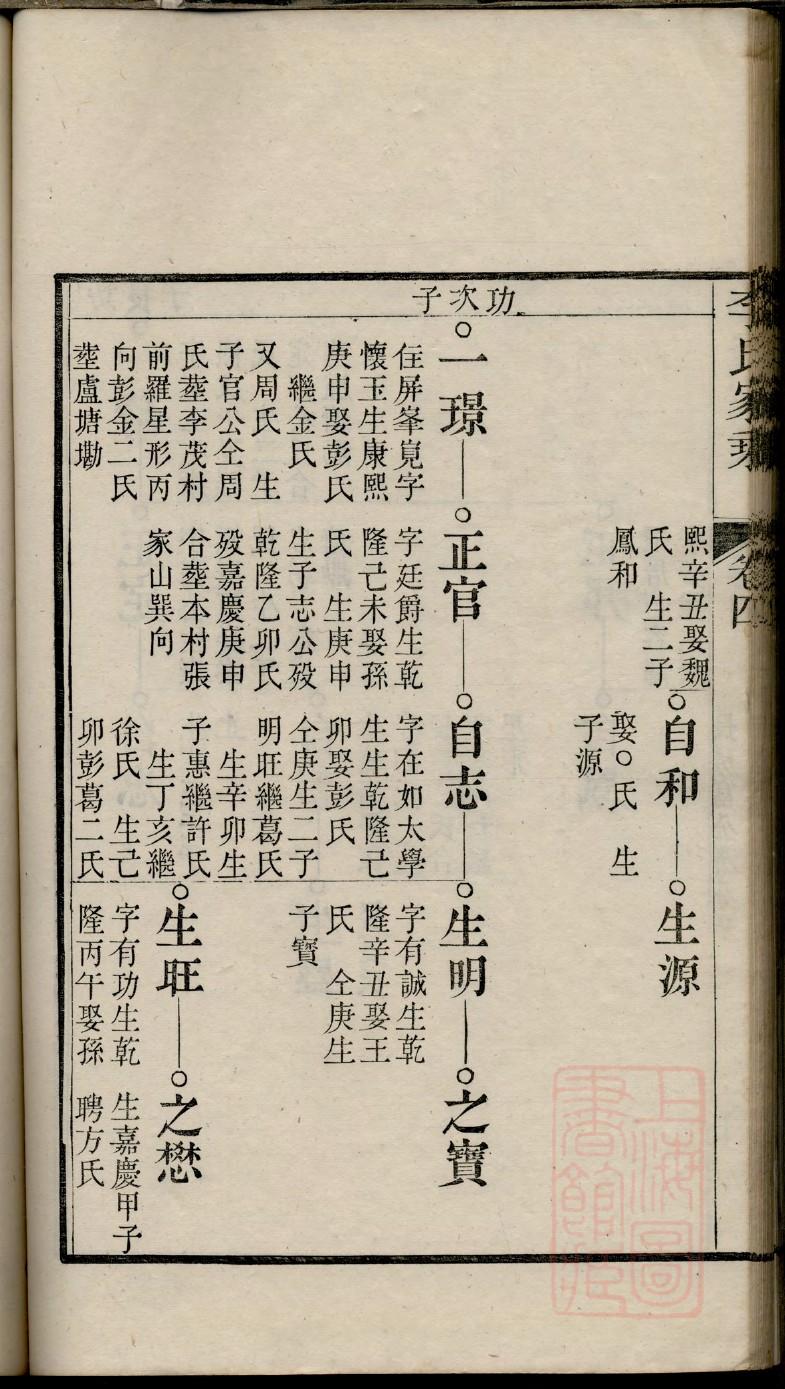 李氏家乘
卷四
熙辛丑娶魏
氏　生二子
鳳和
自和
娶○氏　生
子源
生源
功次子
一璟
住屏峯嵬字
懷玉生康熙
庚申娶彭氏
繼金氏
又周氏　生
子官公仝周
氏塟李茂村
前羅星形丙
向彭金二氏
塟盧塘塝
正官
字廷爵生乾
隆己未娶孫
氏　生庚申
生子志公殁
乾隆乙卯氏
殁嘉慶庚申
合塟本村張
家山巽向
自志
字在如太學
生生乾隆己
卯娶彭氏
仝庚生二子
明旺繼葛氏
生辛卯生
子惠繼許氏
生丁亥繼
徐氏　生己
卯彭葛二氏
生明
字有誠生乾
隆辛丑娶王
氏　仝庚生
子寶
之寶
生旺
字有功生乾
隆丙午娶孫
之懋
生嘉慶甲子
聘方氏
上海圖
書館藏